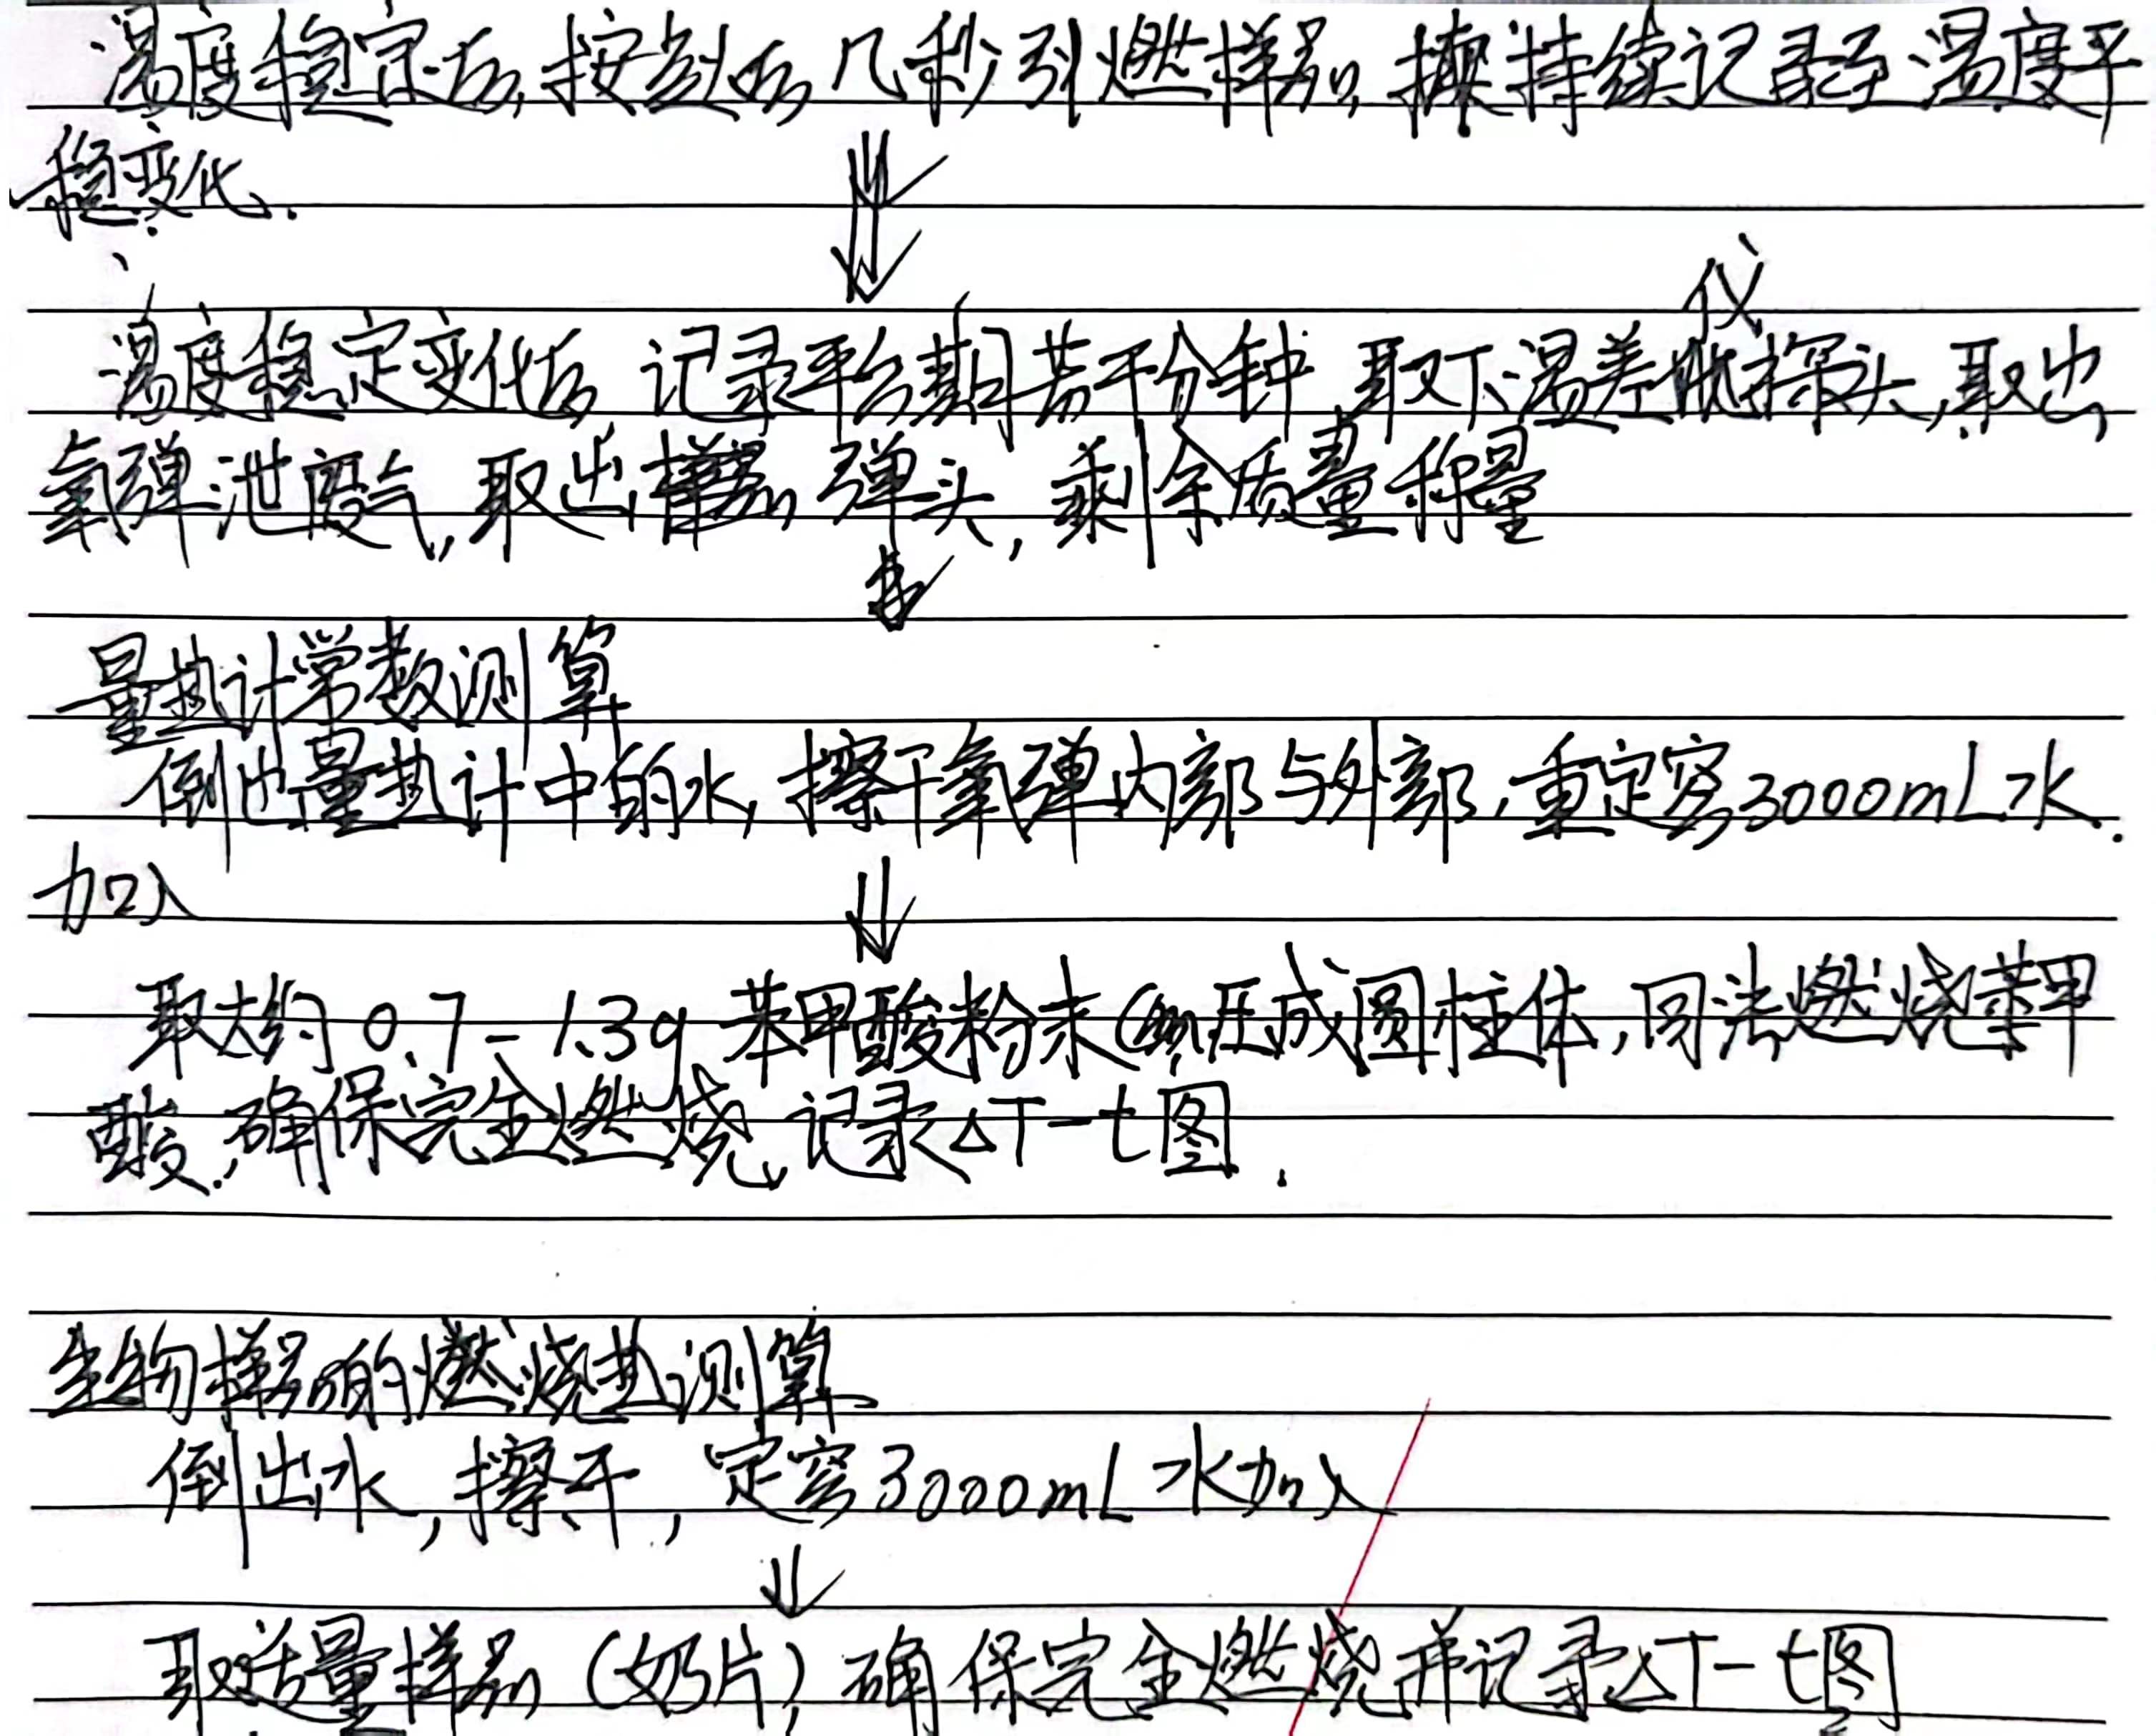 温度稳定后,按点火后几秒引燃样品,持续记录至温度平
稳变化.
仪
温度稳定变化后 记录平台期若干分钟,取下温差探头,取出
氧弹泄废气,取出弹头,剩余质量称量
量热计常数测算
倒出量热计中的水,擦干氧弹内部与外部,重定容3000mL水.
加入
取大约0.7-1.3g 苯甲酸粉末压成圆柱体,同法燃烧苯甲
酸,确保完全燃烧,记录ΔT-t图.
生物样品的燃烧热测算
倒出水,擦干,定容3000mL水加入
取适量样品(奶片),确保完全燃烧并记录ΔT-t图